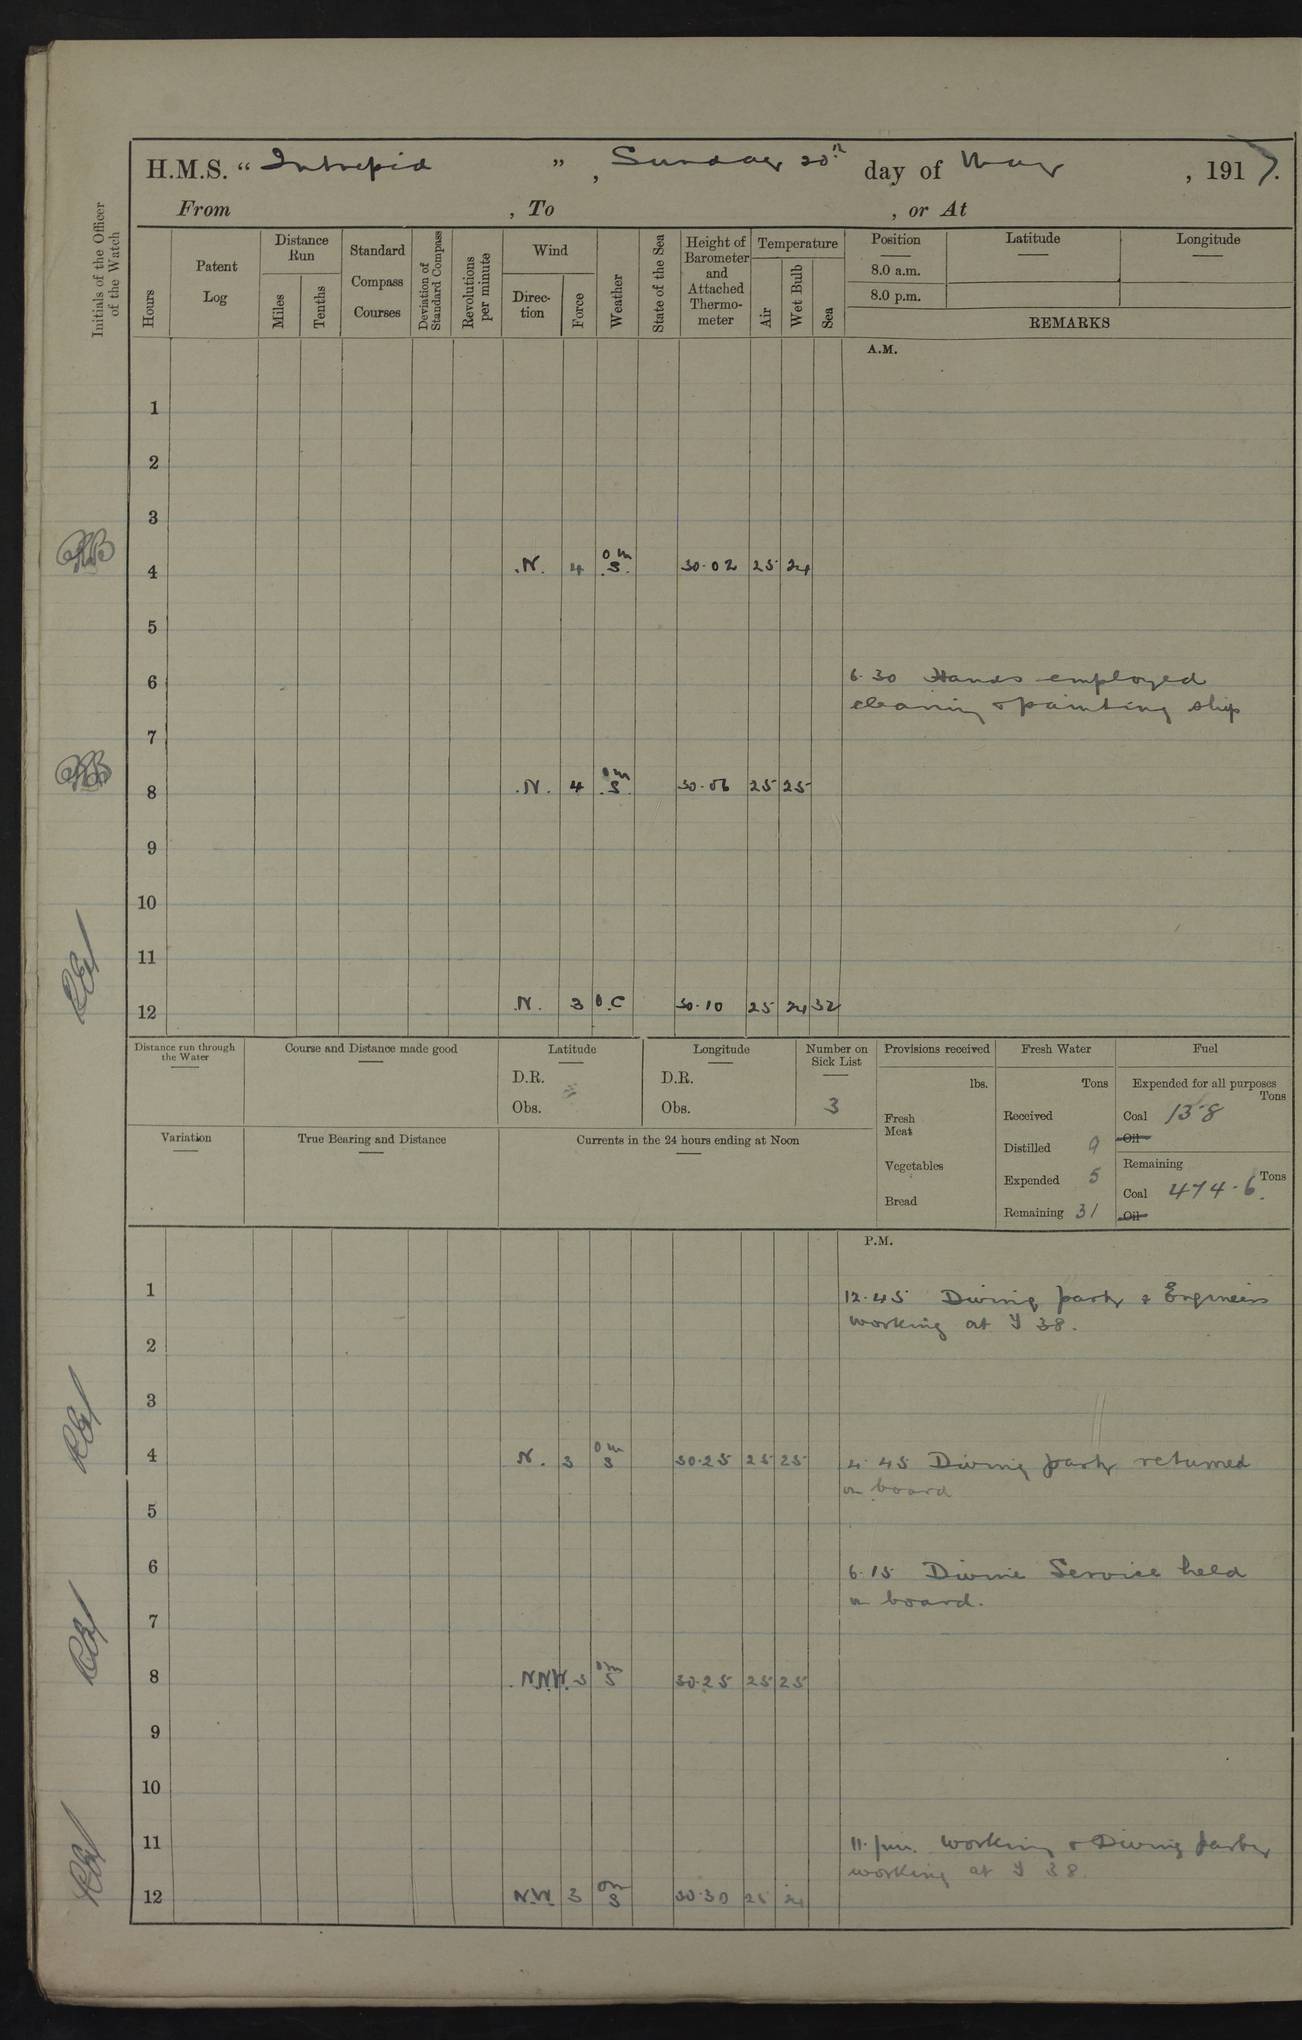 H.M.S. “ Intrepid ” , Sunday 20th day of May , 1917.
From , To , or At
Initials of the Officer of the Watch
Hours
Patent Log
Distance Run
Miles
Tenths
Standard Compass Courses
Deviation of Standard Compass
Revolutions per minute
Wind
Direc-tion
Force
Weather
State of the Sea
Height of Barometer and Attached Thermo-meter
Temperature
Air
Wet Bulb
Sea
Position Latitude Longitude
8.0 a.m.
8.0 p.m.
REMARKS
A.M.
1
2
3
4 .N. 4 o m .s. 30.02 25 24
5
6 6.30 Hands employed
cleaning & painting ship
7
8 .N. 4 o m .s. 30.06 25 25
9
10
11
12 .N. 3 o.c 30.10 25 24 32
Distance run through the Water
Course and Distance made good
Latitude
D.R.
Obs.
Longitude
D.R.
Obs.
Number on Sick List
3
Provisions received
lbs.
Fresh Meat
Vegetables
Bread
Fresh Water
Tons
Received
Distilled 9
Expended 5
Remaining 31
Fuel
Expended for all purposes
Tons
Coal 13.8
Oil
Remaining
Tons
Coal 474.6.
Oil
Variation
True Bearing and Distance
Currents in the 24 hours ending at Noon
P.M.
1 12.45 Diving party & Engineers
working at Y 38.
2
3
4 N. 3 o m s 30.25 25 25 4.45 Diving party returned
on board
5
6 6.15 Divine Service held
on board.
7
8 .N.N.W. 3 o m s 30.25 25 25
9
10
11 11. pm. Working & Diving party
working at Y 38.
12 N.W. 3 o m s 30.30 25 24